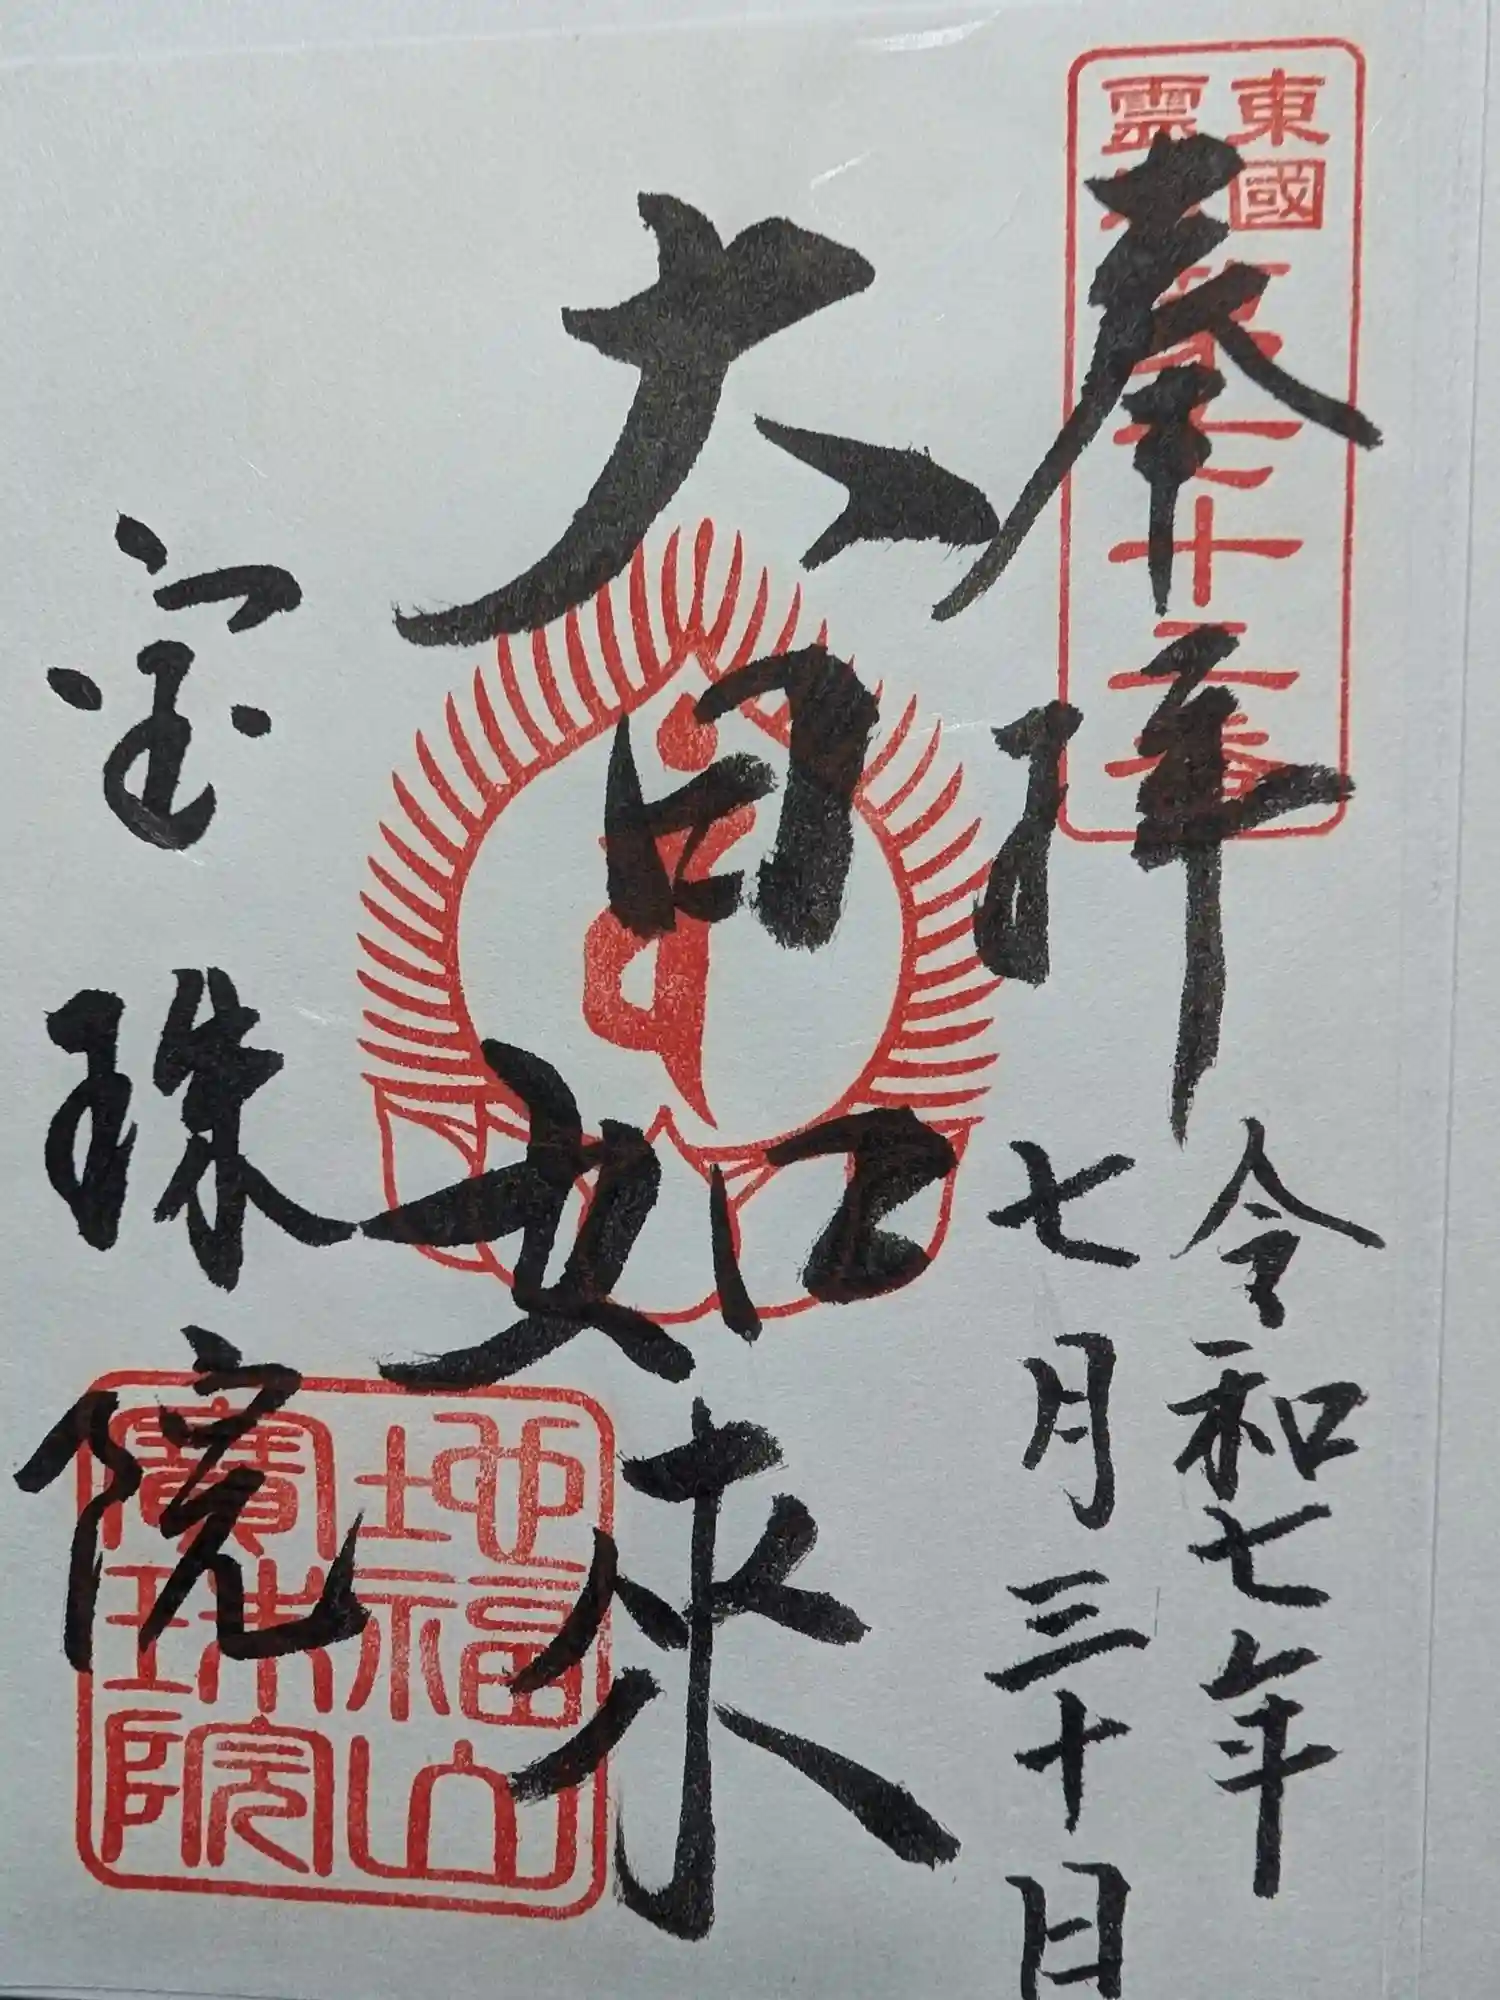 東國
靈
奉拝
令和七年
七月三十日
大日如来
宝珠院
地福山
寶珠院